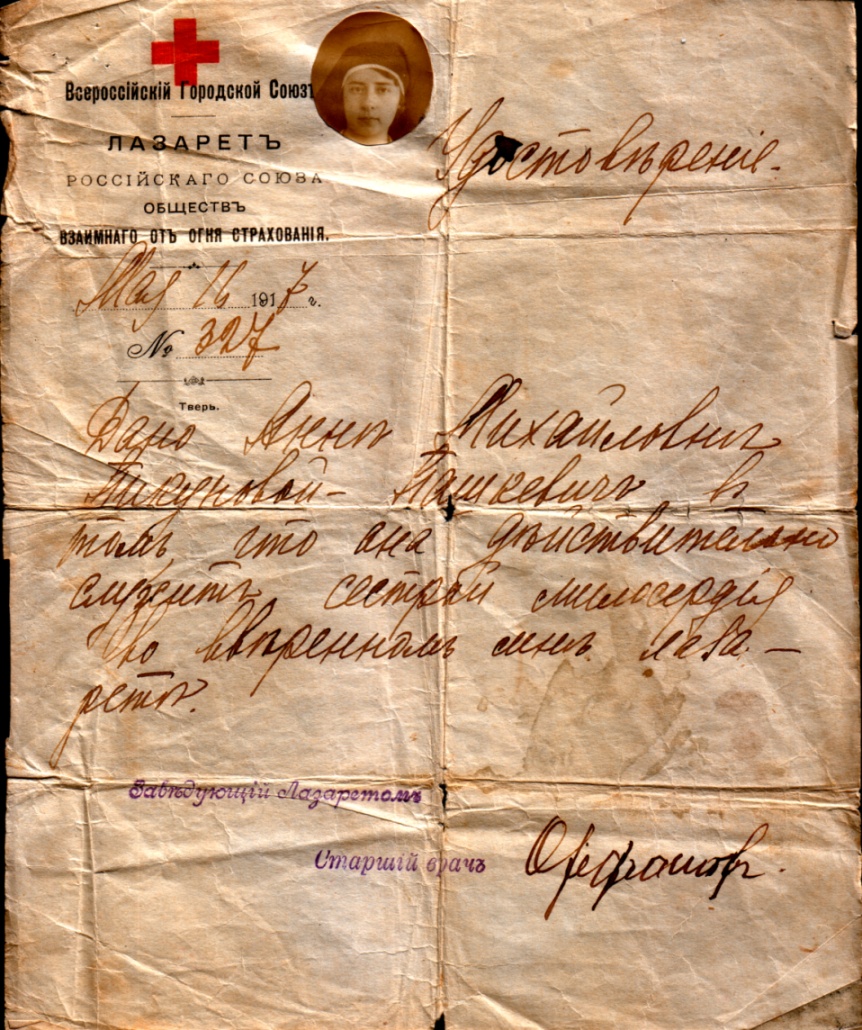 Всероссійскій Городской Союзъ
ЛАЗАРЕТЪ
РОССІЙСКАГО СОЮЗА
ОБЩЕСТВЪ
ВЗАИМНАГО ОТЪ ОГНЯ СТРАХОВАНІЯ.
Удостовѣреніе.
Мая 16 1917 г.
№ 327
Тверь.
Дано Аннѣ Михайловнѣ
Пикуновой-Пашкевичъ в
томъ что она дѣйствительно
служитъ сестрой милосердія
во ввѣренномъ мнѣ лаза-
ретѣ.
Завѣдующій Лазаретомъ
Старшій врачъ